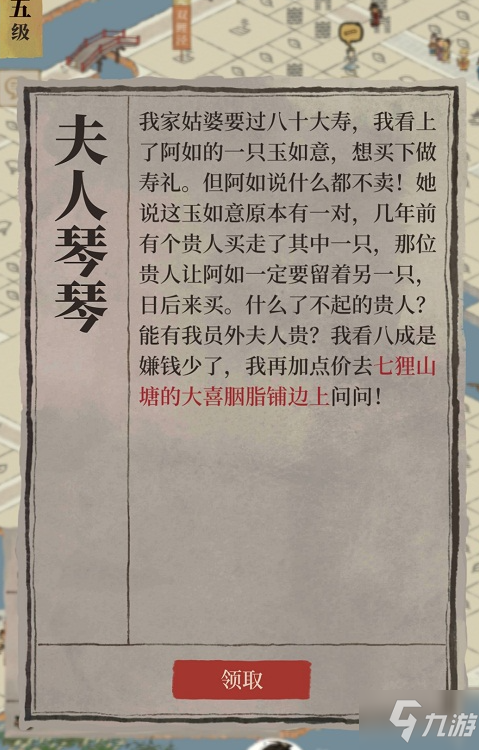 五级
夫人琴琴
我家姑婆要过八十大寿，我看上
了阿如的一只玉如意，想买下做
寿礼。但阿如说什么都不卖！她
说这玉如意原本有一对，几年前
有个贵人买走了其中一只，那位
贵人让阿如一定要留着另一只，
日后来买。什么了不起的贵人？
能有我员外夫人贵？我看八成是
嫌钱少了，我再加点价去七狸山
塘的大喜胭脂铺边上问问！
领取
九游